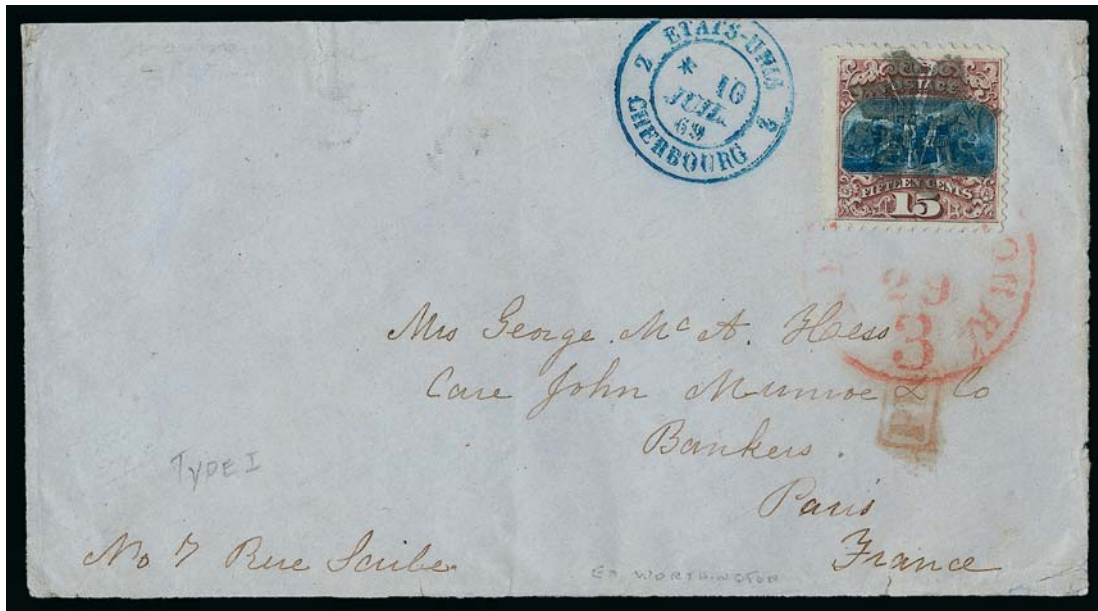 2 ETATS-UNIS 2
* 10
JUIL.
69
CHERBOURG
POSTAGE
FIFTEEN CENTS
15
29
3
Mrs George Mc A. Hess
Care John Munroe & Co
Bankers.
Paris
France
TYPE I
No 7 Rue Scribe
EX WORTHINGTON